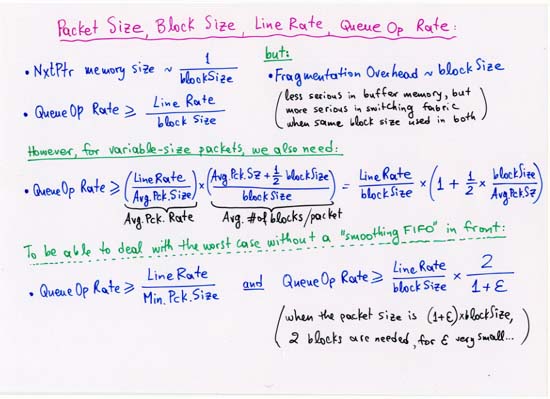 Packet Size, Block Size, Line Rate, Queue Op Rate:
• NxtPtr memory size ~ 1 / blockSize
but:
• Fragmentation Overhead ~ blockSize
(less serious in buffer memory, but
more serious in switching fabric
when same block size used in both)
• QueueOp Rate ≥ Line Rate / block Size
However, for variable-size packets, we also need:
• QueueOp Rate ≥ (Line Rate / Avg.Pck.Size) × (Avg.Pck.Sz + 1/2 blockSize / blockSize) = Line Rate / blockSize × (1 + 1/2 × blockSize / Avg.Pck.Sz)
Avg. Pck. Rate Avg. # of blocks/packet
To be able to deal with the worst case without a "smoothing FIFO" in front:
• QueueOp Rate ≥ Line Rate / Min. Pck. Size and QueueOp Rate ≥ Line Rate / blockSize × 2 / 1 + ε
(when the packet size is (1+ε)×blockSize,
2 blocks are needed, for ε very small...)